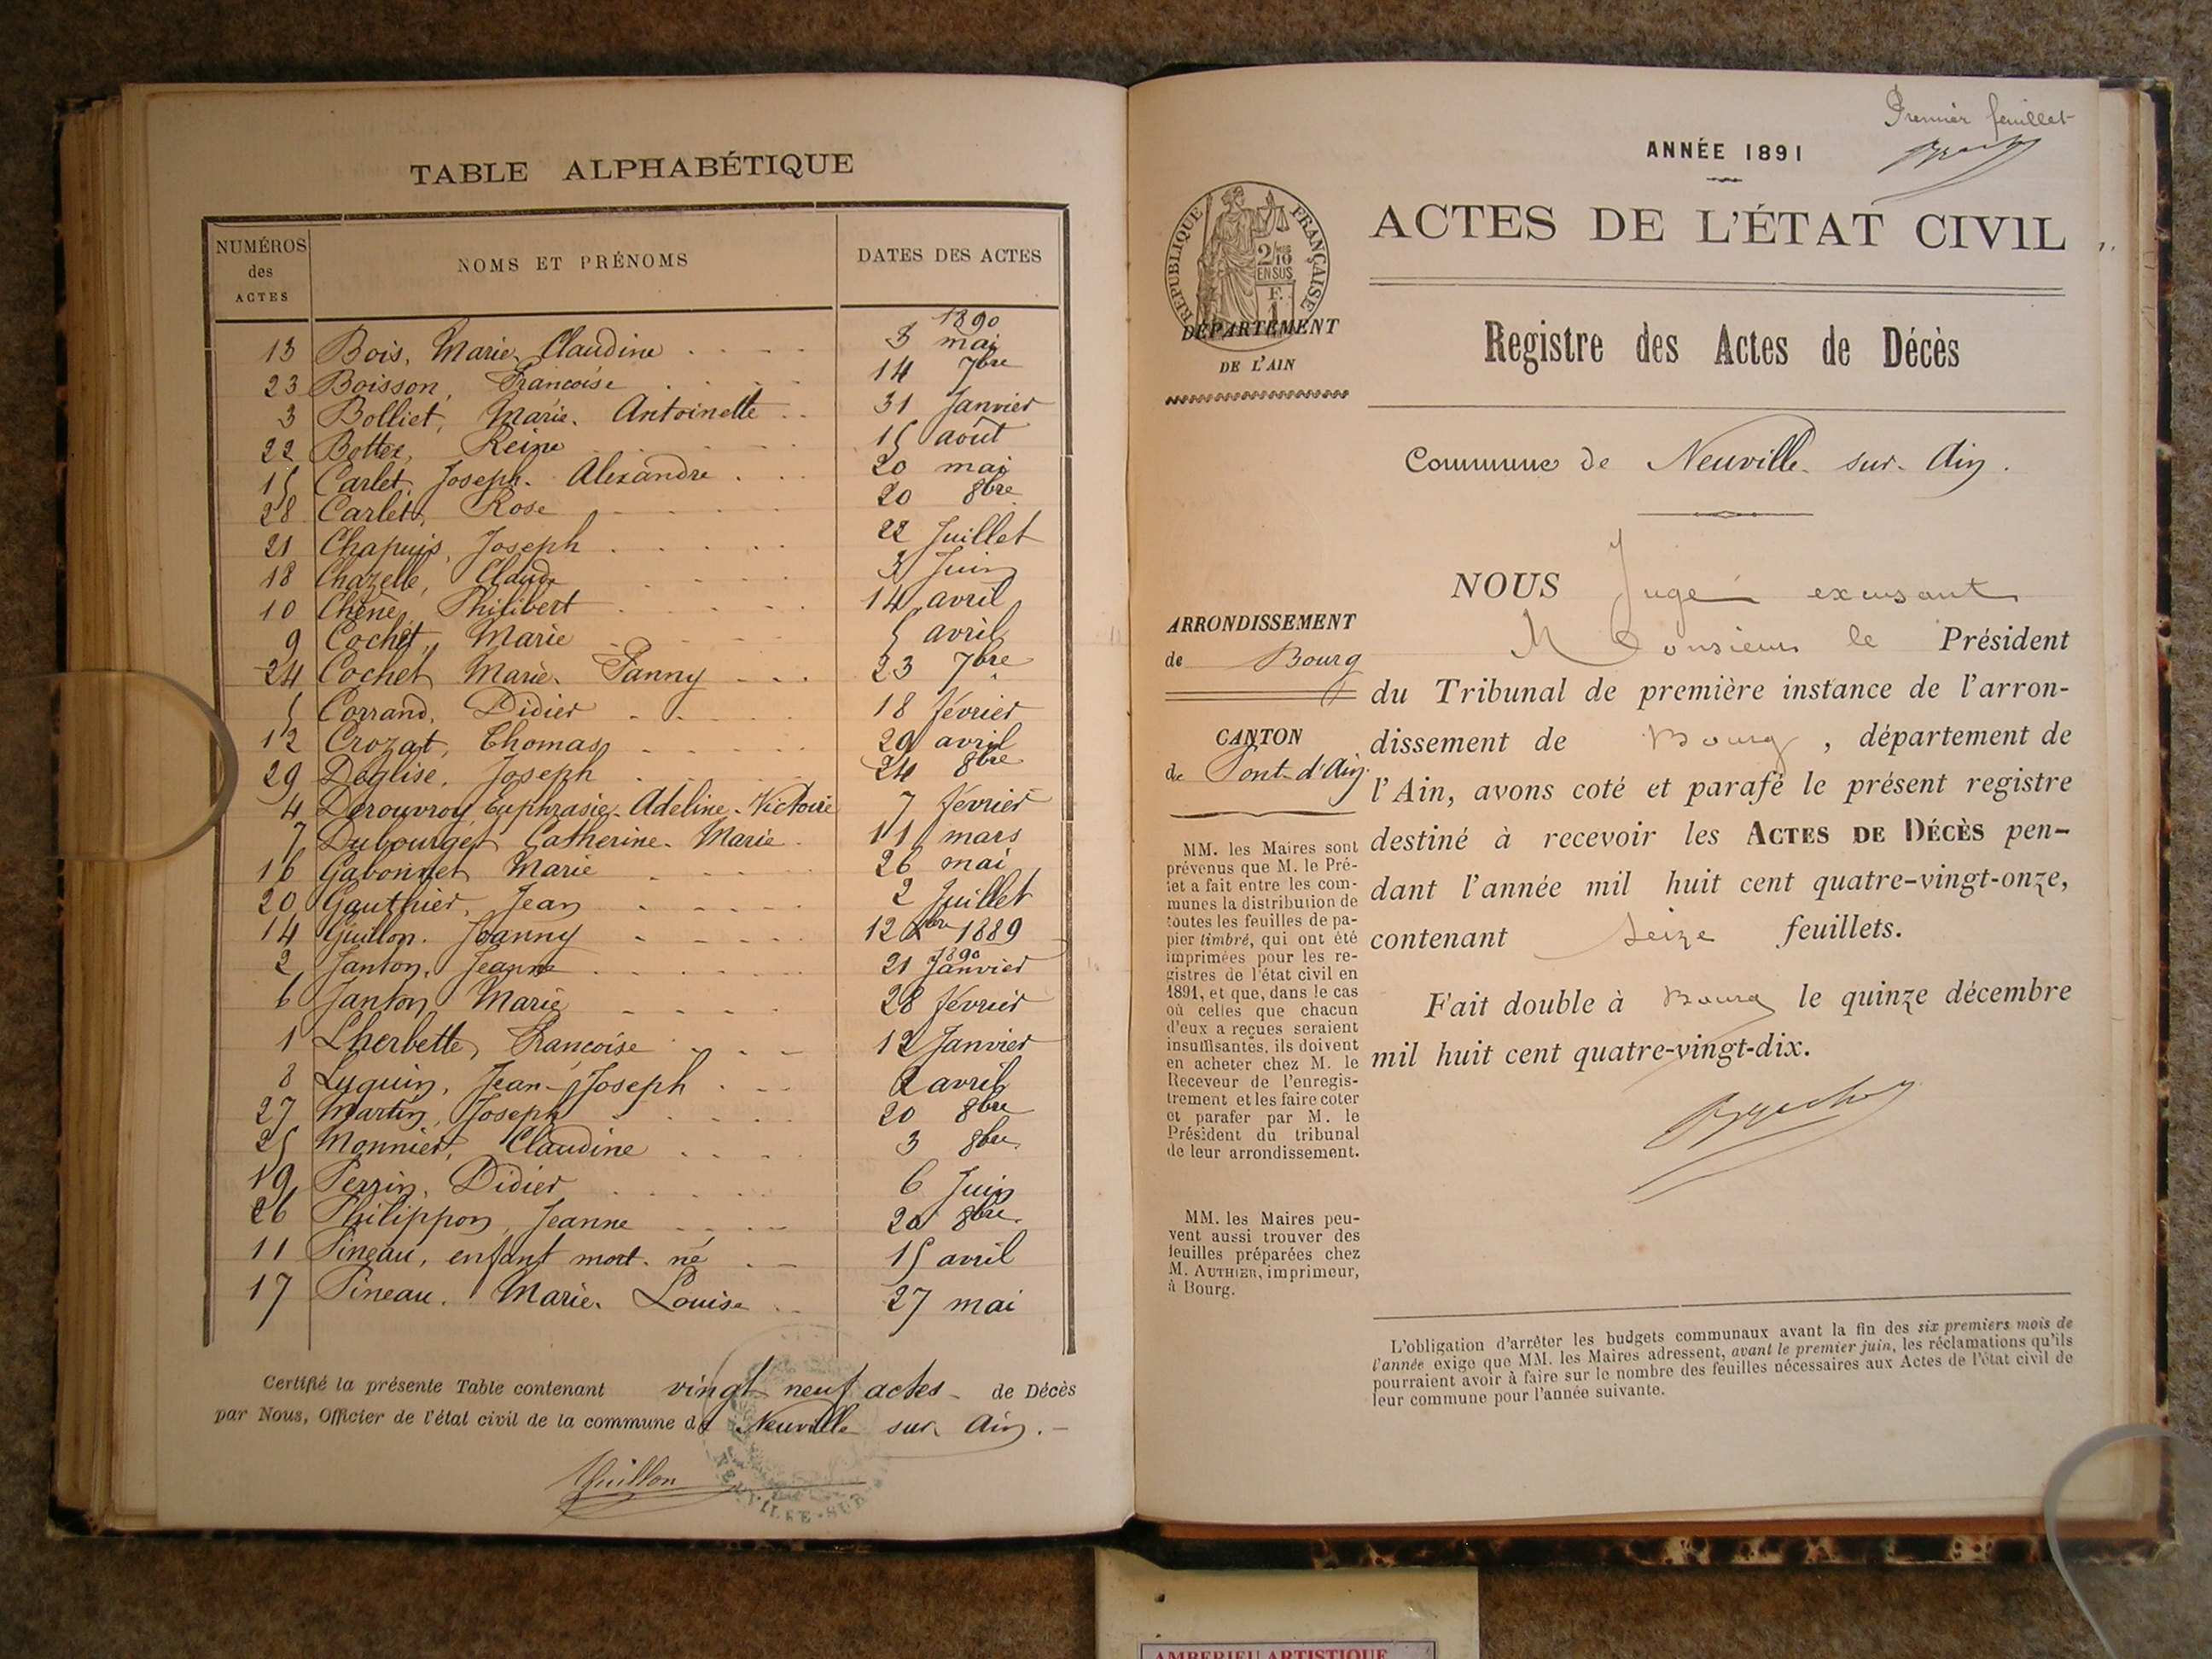 TABLE ALPHABÉTIQUE
NUMÉROS des ACTES
NOMS ET PRÉNOMS
DATES DES ACTES
1890
13 Bois, Marie Claudine 3 mai
23 Boisson, Francoise 14 7bre
3 Bolliet, Marie-Antoinette 31 Janvier
22 Bottex, Reine 15 août
15 Carlet, Joseph-Alexandre 20 mai
28 Carlet, Rose 20 8bre
21 Chapuis, Joseph 22 Juillet
18 Chazelle, Claude 3 Juin
10 Chêne, Philibert 14 avril
9 Cochet, Marie 5 avril
24 Cochet Marie-Fanny 23 7bre
5 Corrand, Didier 18 février
12 Crozat, Thomas 29 avril
29 Déglise, Joseph 24 8bre
4 Derouvroy, Euphrasie-Adeline-Victoire 7 février
7 Dubourget Catherine-Marie 11 mars
16 Gabonnet Marie 26 mai
20 Gauthier, Jean 2 Juillet
14 Guillon, Joanny 12 1889
1890
2 Janton, Jeanne 21 Janvier
6 Janton, Marie 28 février
1 Lherbette, Francoise 12 Janvier
8 Luguin, Jean-Joseph 2 avril
27 Martin, Joseph 20 8bre
25 Monnier, Claudine 3 8bre
19 Perrin, Didier 6 Juin
26 Philippon, Jeanne 20 8bre
11 Pineau, enfant mort-né 15 avril
17 Pineau, Marie-Louise 27 mai
Certifié la présente Table contenant vingt neuf actes de Décès
par Nous, Officier de l'état civil de la commune de Neuville sur Ain.
Guillon
Premier feuillet
ANNÉE 1891
RÉPUBLIQUE FRANÇAISE
2/10
EN SUS
F.
1
ACTES DE L'ÉTAT CIVIL
DÉPARTEMENT
DE L'AIN
Registre des Actes de Décès
Commune de Neuville-sur-Ain.
ARRONDISSEMENT
de Bourg
CANTON
de Pont-d'Ain
NOUS Juge excusant
Monsieur le Président
du Tribunal de première instance de l'arron-
dissement de Bourg, département de
l'Ain, avons coté et parafé le présent registre
destiné à recevoir les ACTES DE DÉCÈS pen-
dant l'année mil huit cent quatre-vingt-onze,
contenant seize feuillets.
Fait double à Bourg le quinze décembre
mil huit cent quatre-vingt-dix.
MM. les Maires sont
prévenus que M. le Pré-
fet a fait entre les com-
munes la distribution de
toutes les feuilles de pa-
pier timbré, qui ont été
imprimées pour les re-
gistres de l'état civil en
1891, et que, dans le cas
où celles que chacun
d'eux a reçues seraient
insuffisantes, ils doivent
en acheter chez M. le
Receveur de l'enregis-
trement et les faire coter
et parafer par M. le
Président du tribunal
de leur arrondissement.
MM. les Maires peu-
vent aussi trouver des
feuilles préparées chez
M. AUTHIER, imprimeur,
à Bourg.
L'obligation d'arrêter les budgets communaux avant la fin des six premiers mois de
l'année exige que MM. les Maires adressent, avant le premier juin, les réclamations qu'ils
pourraient avoir à faire sur le nombre des feuilles nécessaires aux Actes de l'état civil de
leur commune pour l'année suivante.
AMBERIEU ARTISTIQUE